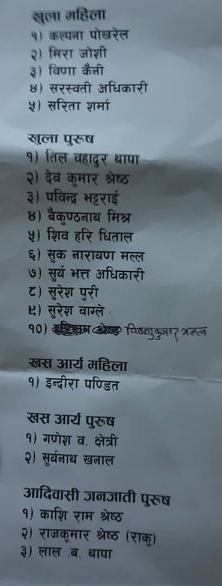 खुला महिला
१) कल्पना पोखरेल
२) मिरा जोशी
३) विणा कैनी
४) सरस्वती अधिकारी
५) सरिता शर्मा
खुला पुरुष
१) तिल वहादुर थापा
२) देव कुमार श्रेष्ठ
३) पविन्द्र भट्टराई
४) बैकुण्ठनाथ मिश्र
५) शिव हरि धिताल
६) सुक नारायण मल्ल
७) सुर्य भत्त अधिकारी
८) सुरेश पुरी
९) सुरेश वाग्ले
१०) विष्णुकुमार
खस आर्य महिला
१) इन्दीरा पण्डित
खस आर्य पुरुष
१) गणेश व. क्षेत्री
२) सुर्यनाथ खनाल
आदिवासी जनजाती पुरुष
१) काशि राम श्रेष्ठ
२) राजकुमार श्रेष्ठ (राकु)
३) लाल .ब. थापा